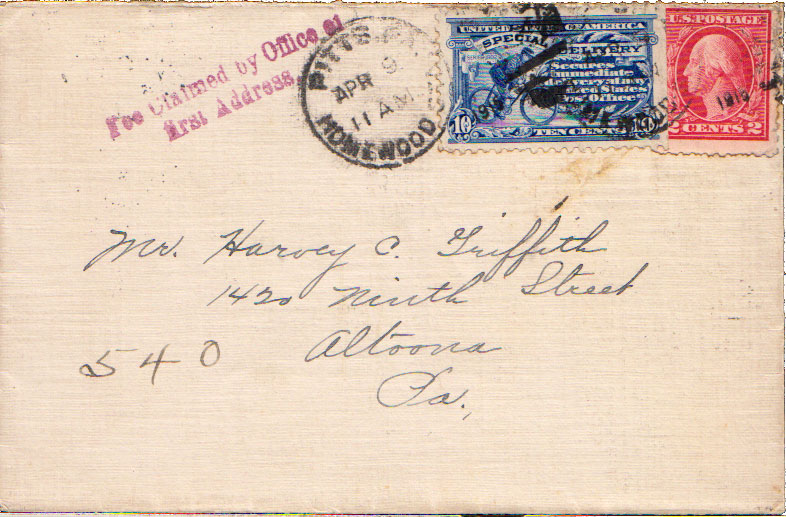 Fee Claimed by Office at
first Address.
PITTSBURGH
APR 9
11 AM
HOMEWOOD
UNITED STATES OF AMERICA
SPECIAL DELIVERY
Secures
Immediate
delivery at any
United States
Post Office
10 TEN CENTS 10
U.S. POSTAGE
2 CENTS 2
Mr. Harvey C. Griffith
1420 Ninth Street
Altoona
Pa.
540